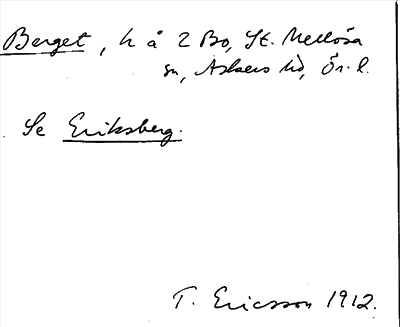 Berget, h å 2 Bo, St. Mellösa
sn, Askers hd, Ör. l.
Se Eriksberg.
T. Ericsson 1912.